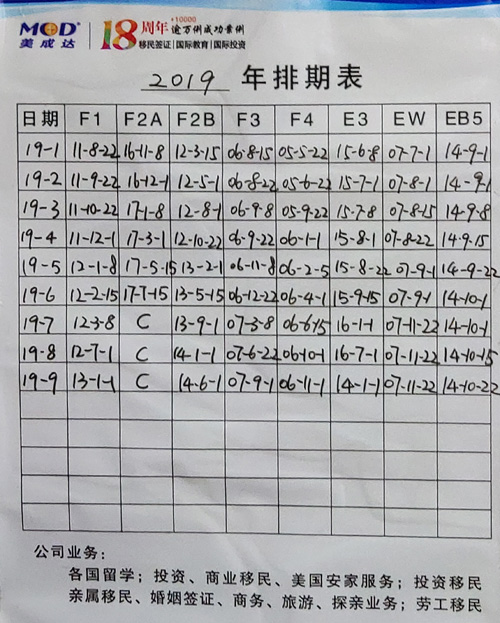 MOD® 美成达 18 周年 +10000 逾万例成功案例
移民签证|国际教育|国际投资
2019 年排期表
日期 F1 F2A F2B F3 F4 E3 EW EB5
19-1 11-8-22 16-11-8 12-3-15 06-8-15 05-5-22 15-6-8 07-7-1 14-9-1
19-2 11-9-22 16-12-1 12-5-1 06-8-22 05-6-22 15-7-1 07-8-1 14-9-1
19-3 11-10-22 17-1-8 12-8-1 06-9-8 05-9-22 15-7-8 07-8-15 14-9-8
19-4 11-12-1 17-3-1 12-10-22 06-9-22 06-1-1 15-8-1 07-8-22 14-9.15
19-5 12-1-8 17-5-15 13-2-1 06-11-8 06-2-5 15-8-22 07-9-1 14-9-22
19-6 12-2-15 17-7-15 13-5-15 06-12-22 06-4-1 15-9-15 07-9-1 14-10-1
19-7 12-3-8 C 13-9-1 07-3-8 06-6-15 16-1-1 07-11-22 14-10-1
19-8 12-7-1 C 14-1-1 07-6-22 06-10-1 16-7-1 07-11-22 14-10-15
19-9 13-1-1 C 14-6-1 07-9-1 06-11-1 14-1-1 07-11-22 14-10-22
公司业务：
各国留学；投资、商业移民、美国安家服务；投资移民
亲属移民、婚姻签证、商务、旅游、探亲业务；劳工移民